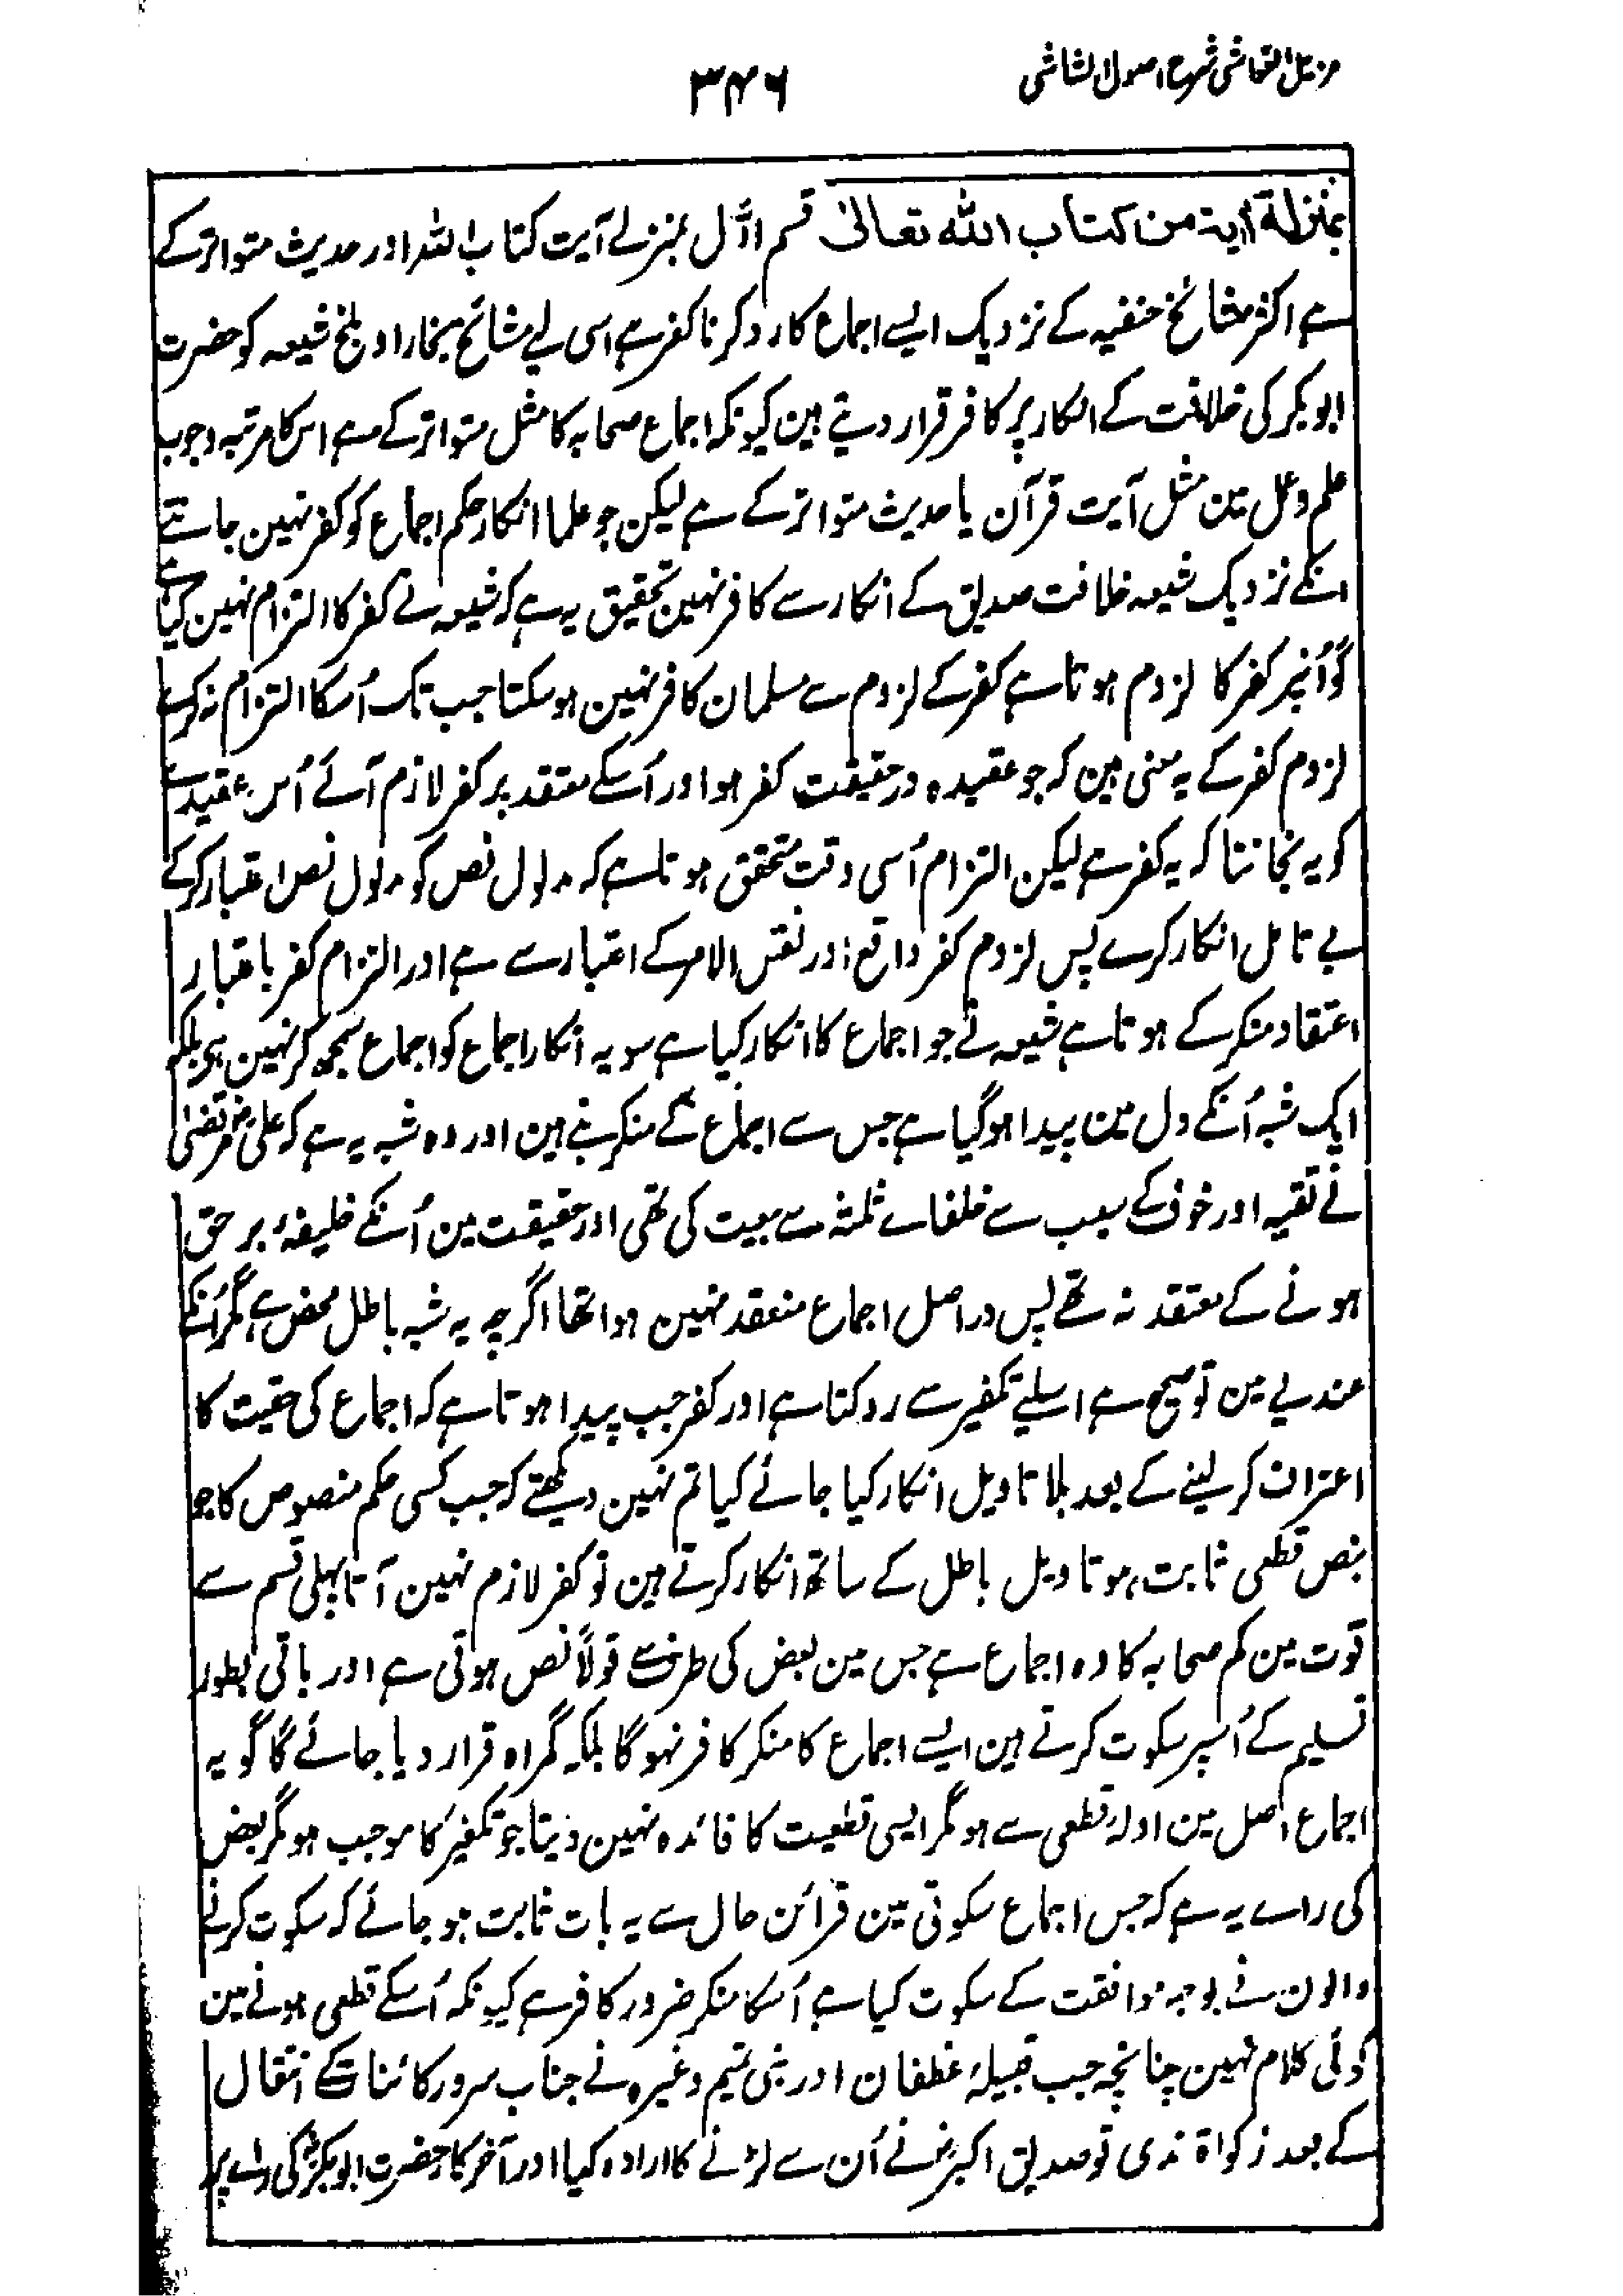 مزیل الغواشی شرح اصول الشاشی
۳۴۶
بمنزلة اٰیة من کتاب الله تعالیٰ قسم اوّل بمنزلے آیت کتاب اللہ اور حدیث متواتر کے
ہے اکثر مشائخ حنفیہ کے نزدیک ایسے اجماع کا رد کرنا کفر ہے اسی لیے مشائخ بخارا و بلخ شیعہ کو حضرت
ابو بکر کی خلافت کے انکار پر کافر قرار دیتے ہین کیونکہ اجماع صحابہ کا مثل متواتر کے ہے اس کا مرتبہ وجوب
علم و عمل مین مثل آیت قرآن یا حدیث متواتر کے ہے لیکن جو علما انکار حکم اجماع کو کفر نہین جانتے
انکے نزدیک شیعہ خلافت صدیق کے انکار سے کافر نہین تحقیق یہ ہے کہ شیعہ نے کفر کا التزام نہین کیا ہے
گو اُنپر کفر کا لزوم ہوتا ہے کفر کے لزوم سے مسلمان کافر نہین ہو سکتا جب تک اُسکا التزام نہ کرے
لزوم کفر کے یہ معنی ہین کہ جو عقیدہ در حقیقت کفر ہو اور اُسکے معتقد پر کفر لازم آئے اُس عقیدے
کو یہ نجاننا کہ یہ کفر ہے لیکن التزام اُسی وقت متحقق ہوتا ہے کہ مدلول نص کو مدلول نص اعتبار کرکے
بے تامل انکار کرے پس لزوم کفر واقع اور نفس الامر کے اعتبار سے ہے اور التزام کفر باعتبار
اعتقاد منکر کے ہوتا ہے شیعہ نے جو اجماع کا انکار کیا ہے سو یہ انکار اجماع کو اجماع سمجھ کر نہین ہی بلکہ
ایک شبہ اُنکے دل مین پیدا ہو گیا ہے جس سے اجماع کے منکر بنے ہین اور وہ شبہ یہ ہے کہ علی مرتضیٰؓ
نے تقیہ اور خوف کے سبب سے خلفاے ثلٰثہ سے بیعت کی تھی اور حقیقت مین اُنکے خلیفۂ بر حق
ہونے کے معتقد نہ تھے پس در اصل اجماع منعقد نہین ہوا تھا اگرچہ یہ شبہ باطل محض ہے مگر اُنکے
عندیے مین تو صحیح ہے اسلیے تکفیر سے روکتا ہے اور کفر جب پیدا ہوتا ہے کہ اجماع کی حقیت کا
اعتراف کر لینے کے بعد بلا تاویل انکار کیا جائے کیا تم نہین دیکھتے کہ جب کسی حکم منصوص کا جو
بنص قطعی ثابت ہو تاویل باطل کے ساتھ انکار کرتے ہین تو کفر لازم نہین آتا پہلی قسم سے
قوت مین کم صحابہ کا وہ اجماع ہے جس مین بعض کی طرف سے قولاً نص ہوتی ہے اور باقی بطور
تسلیم کے اُسپر سکوت کرتے ہین ایسے اجماع کا منکر کافر نہوگا بلکہ گمراہ قرار دیا جائے گا گو یہ
اجماع اصل مین ادلہ قطعی سے ہو مگر ایسی قطعیت کا فائدہ نہین دیتا جو تکفیر کا موجب ہو مگر بعض
کی راے یہ ہے کہ جس اجماع سکوتی مین قرائن حال سے یہ بات ثابت ہو جائے کہ سکوت کرنے
والون نے بوجہ موافقت کے سکوت کیا ہے اُسکا منکر ضرور کافر ہے کیونکہ اُسکے قطعی ہونے مین
کوئی کلام نہین چنانچہ جب قبیلۂ غطفان اور بنی تمیم وغیرہ نے جناب سرور کائنات کے انتقال
کے بعد زکواۃ ندی تو صدیق اکبرؓ نے اُن سے لڑنے کا ارادہ کیا اور آخر کار حضرت ابو بکرؓ کی راے پر